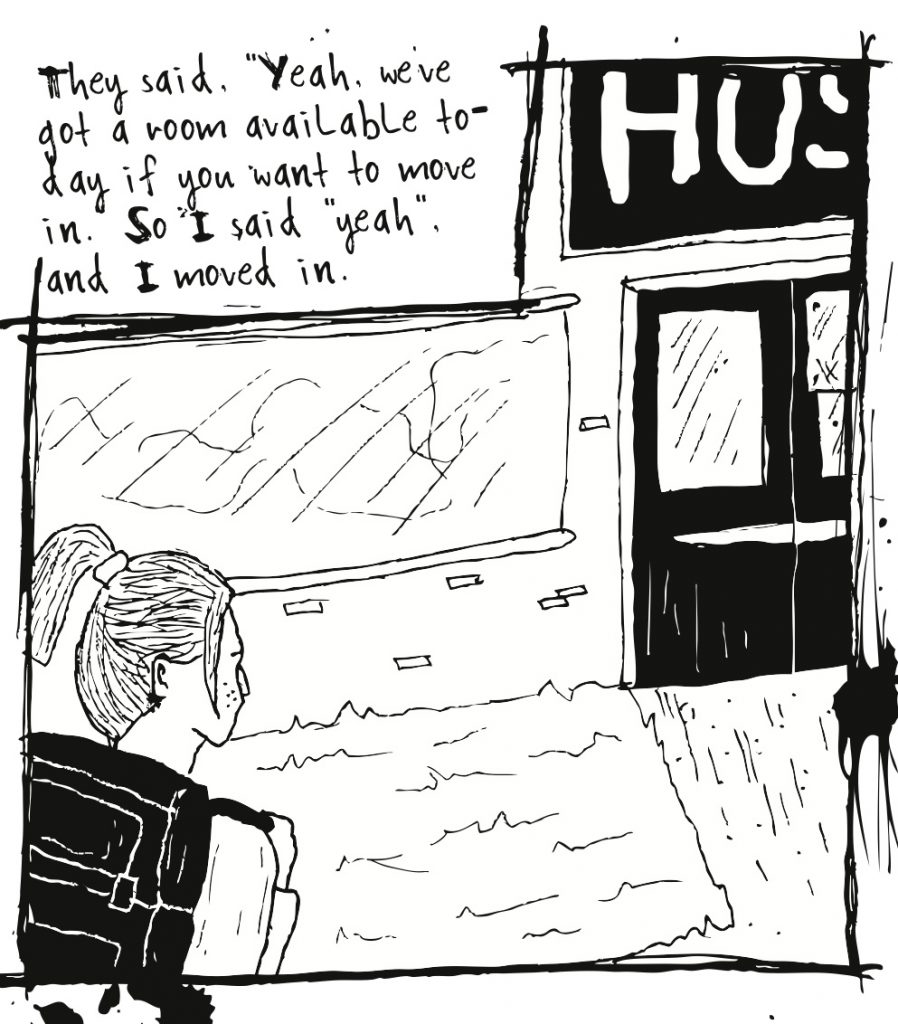 They said, "Yeah, we've
got a room available to-
day if you want to move
in." So I said "yeah",
and I moved in.
HUS